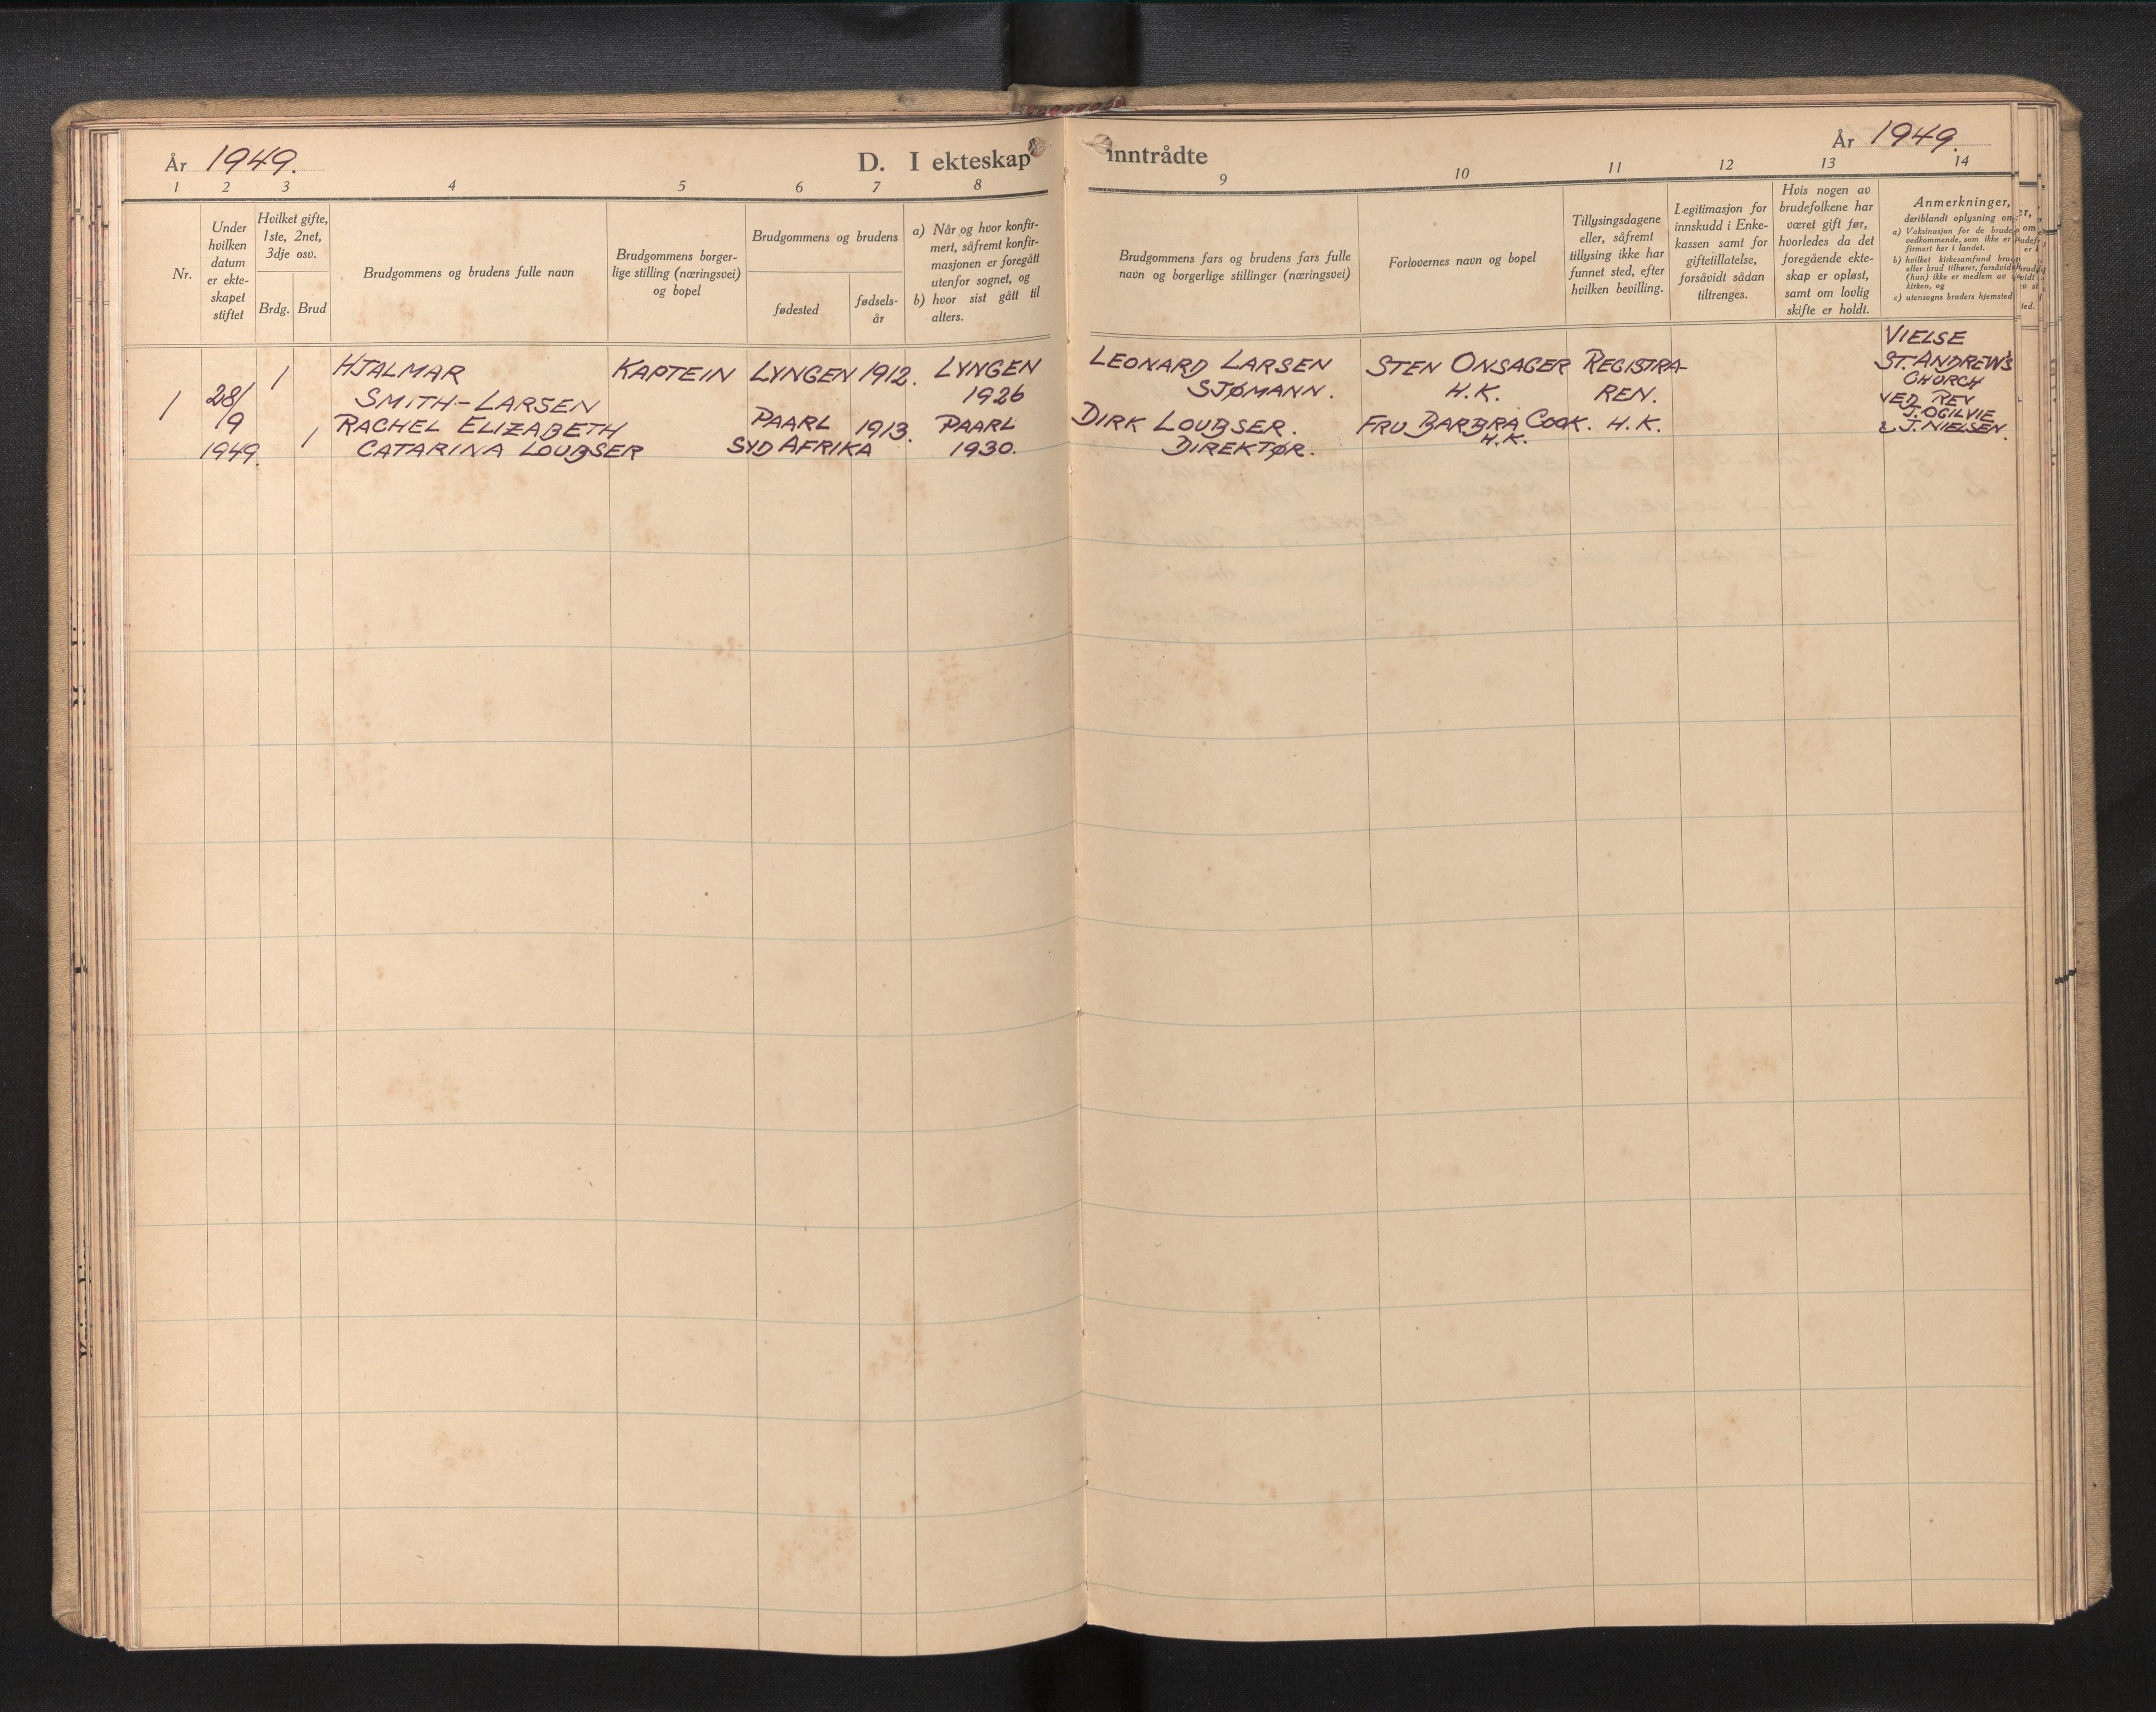 År 1949.
D. I ekteskap
1 2 3 4 5 6 7 8
Nr.
Under
hvilken
datum
er ekte-
skapet
stiftet
Hvilket gifte,
1ste, 2net,
3dje osv.
Brdg. Brud
Brudgommens og brudens fulle navn
Brudgommens borger-
lige stilling (næringsvei)
og bopel
Brudgommens og brudens
fødested
fødsels-
år
a) Når og hvor konfir-
mert, såfremt konfir-
masjonen er foregått
utenfor sognet, og
b) hvor sist gått til
alters.
1
28/
9
1949.
1
1
HJALMAR
SMITH-LARSEN
RACHEL ELIZABETH
CATARINA LOUBSER
KAPTEIN
LYNGEN
PAARL
SYD AFRIKA
1912.
1913.
LYNGEN
1926
PAARL
1930.
inntrådte
År 1949.
9 10 11 12 13 14
Brudgommens fars og brudens fars fulle
navn og borgerlige stillinger (næringsvei)
Forlovernes navn og bopel
Tillysingsdagene
eller, såfremt
tillysing ikke har
funnet sted, efter
hvilken bevilling.
Legitimasjon for
innskudd i Enke-
kassen samt for
giftetillatelse,
forsåvidt sådan
tiltrenges.
Hvis nogen av
brudefolkene har
været gift før,
hvorledes da det
foregående ekte-
skap er opløst,
samt om lovlig
skifte er holdt.
Anmerkninger,
deriblandt oplysning om
a) Vaksinasjon for de brude-
vedkommende, som ikke er
firmert her i landet.
b) hvilket kirkesamfund
eller brud tilhører, forsåvidt
(hun) ikke er medlem av
kirken, og
c) utensogns bruders hjemsted
LEONARD LARSEN
SJØMANN.
DIRK LOUBSER.
DIREKTØR.
STEN ONSAGER
H.K.
FRU BARBRA COOK.
H.K.
REGISTRA-
REN.
H.K.
VIELSE
ST. ANDREW'S
CHURCH
VED REV
J. OGILVIE
& J. NIELSEN.